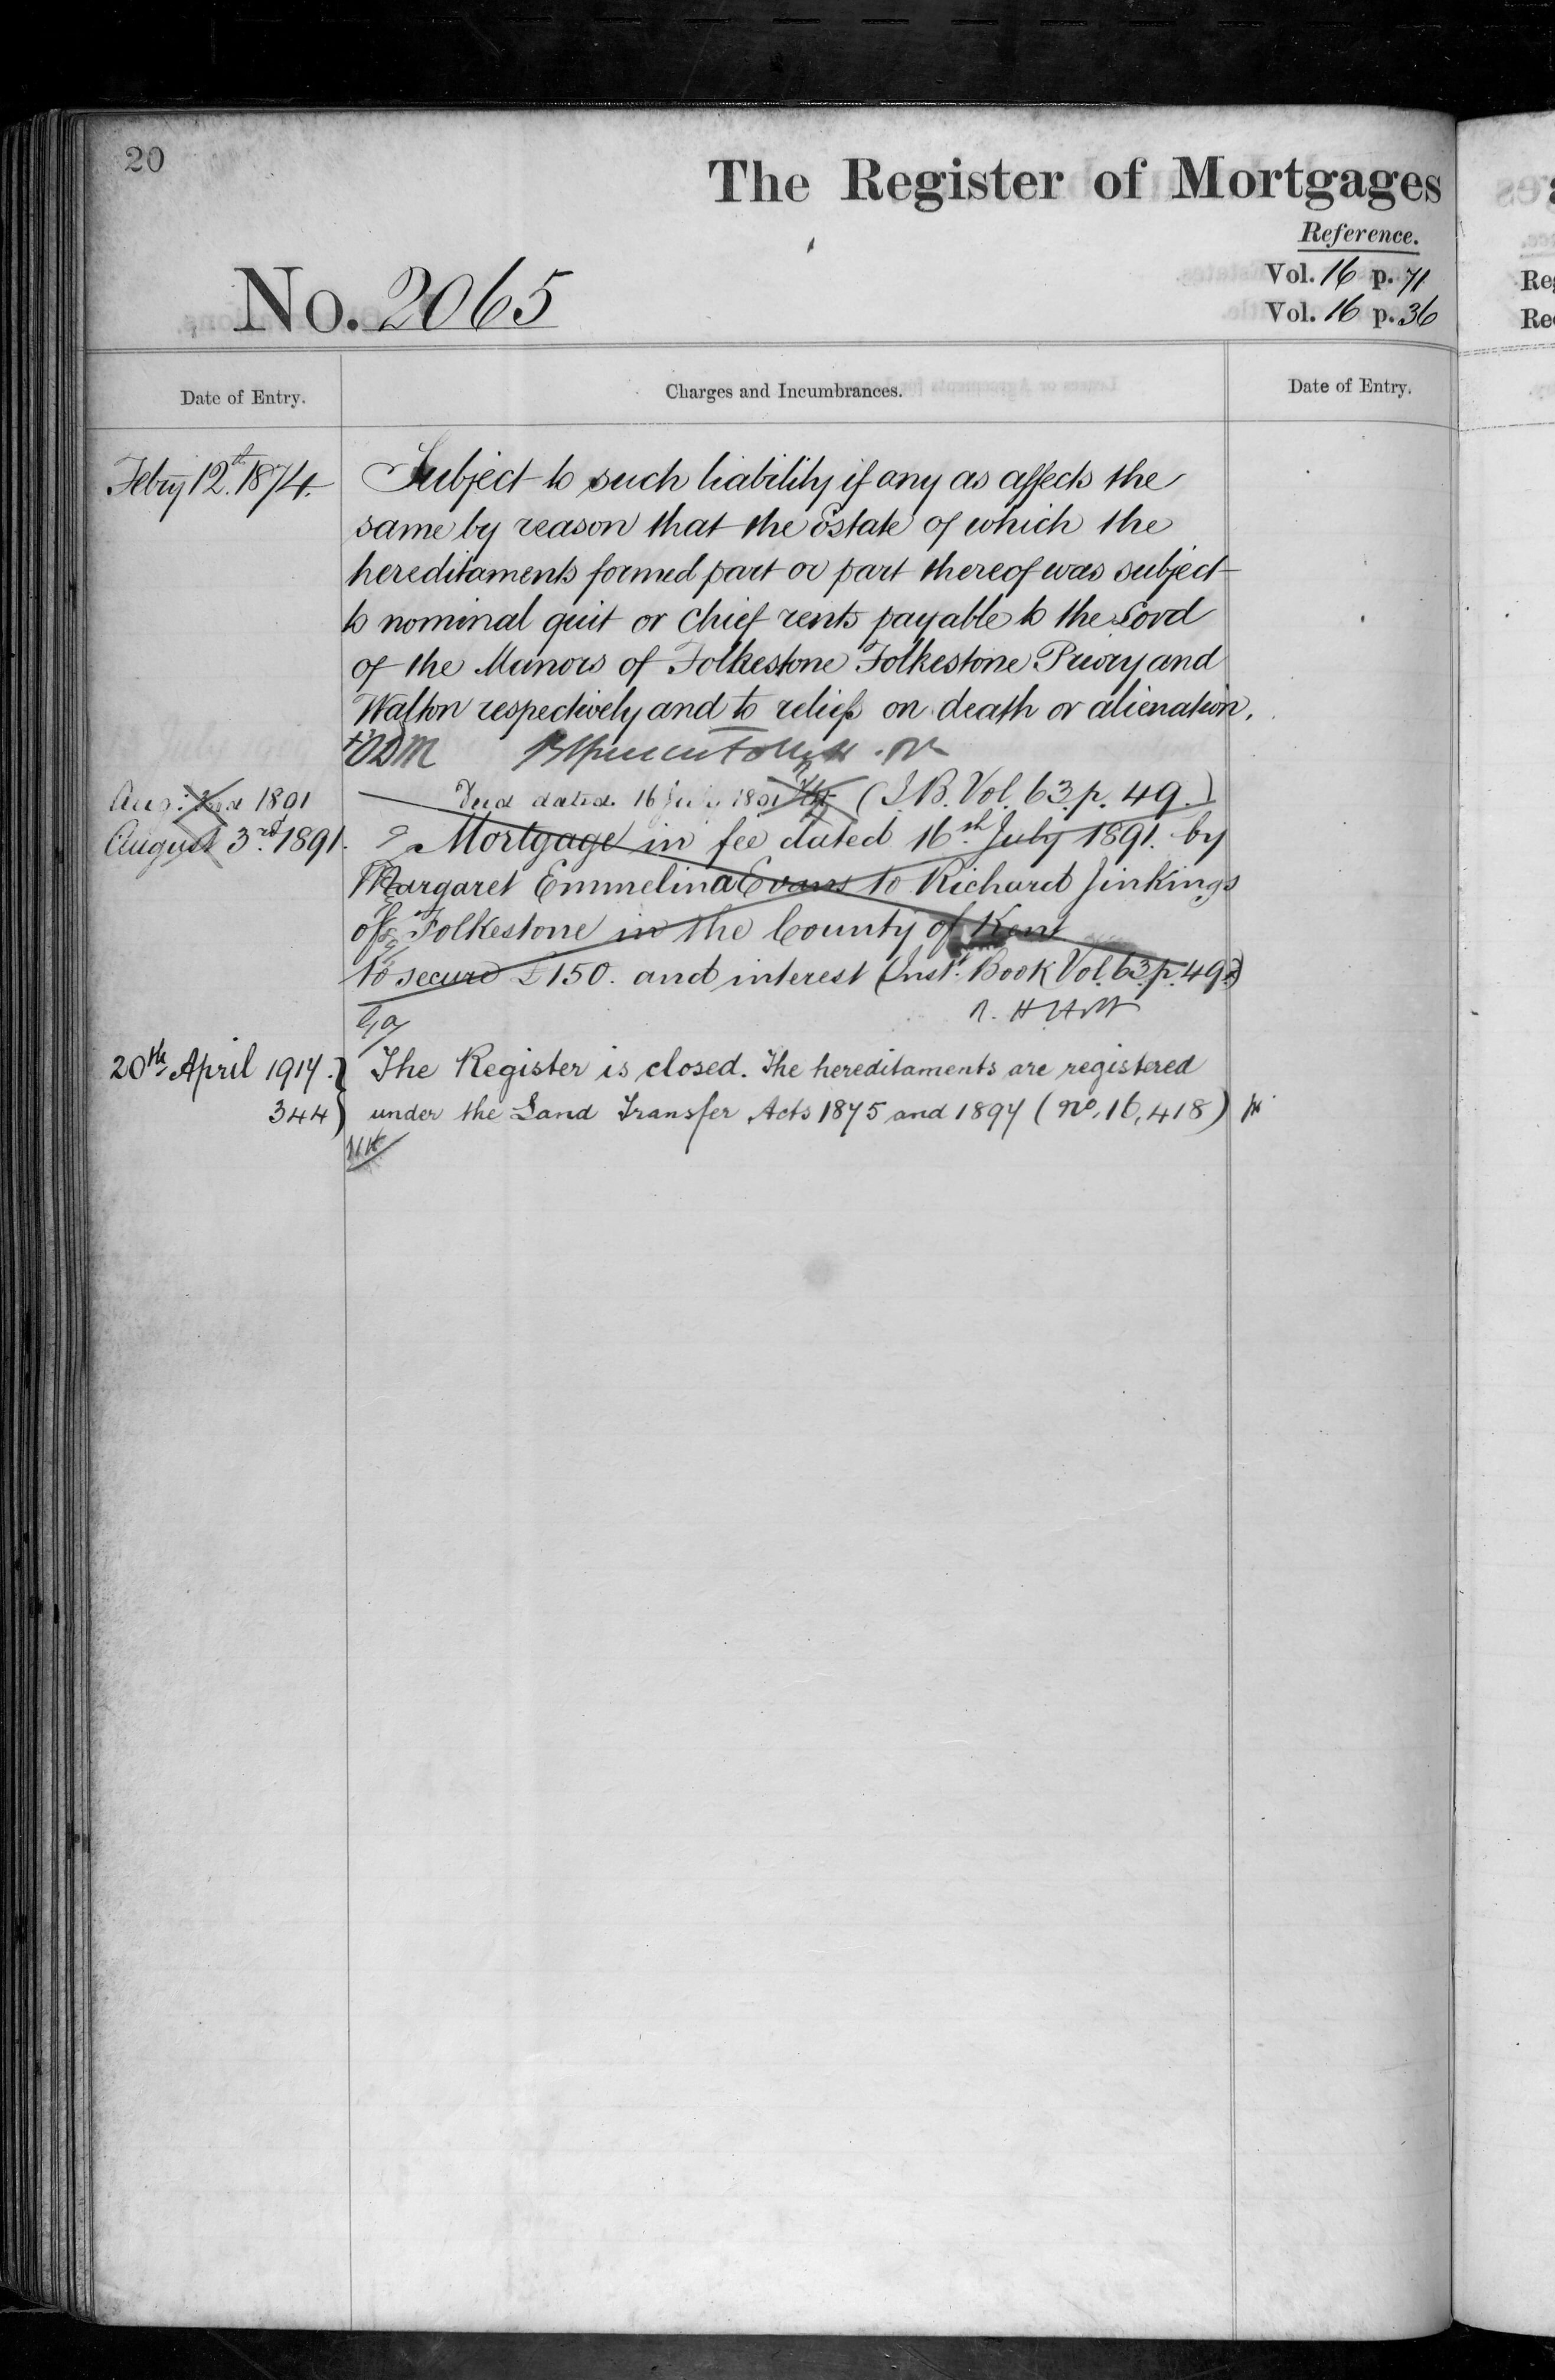 20
The Register of Mortgages
Reference.
Vol. 16 p. 71
Vol. 16 p. 36
No. 2065
Date of Entry.
Charges and Incumbrances.
Date of Entry.
Febry 12th. 1874.
Subject to such liability if any as affects the
same by reason that the Estate of which the
hereditaments formed part or part thereof was subject
to nominal quit or chief rents payable to the Lord
of the Manors of Folkestone Folkestone Priory and
Walton respectively and to reliefs on death or alienation.
Aug: 1891
Deed dated 16 July 1891 (I.B. Vol. 63. p. 49.)
August 3rd. 1891.
Mortgage in fee dated 16th. July 1891. by
Margaret Emmelina Evans to Richard Jinkings
of Folkestone in the County of Kent
to secure £150. and interest (Inst. Book Vol. 63. p. 49.)
20th April 1917.
344
The Register is closed. The hereditaments are registered
under the Land Transfer Acts 1875 and 1897 (No. 16,418)
Reg
Re